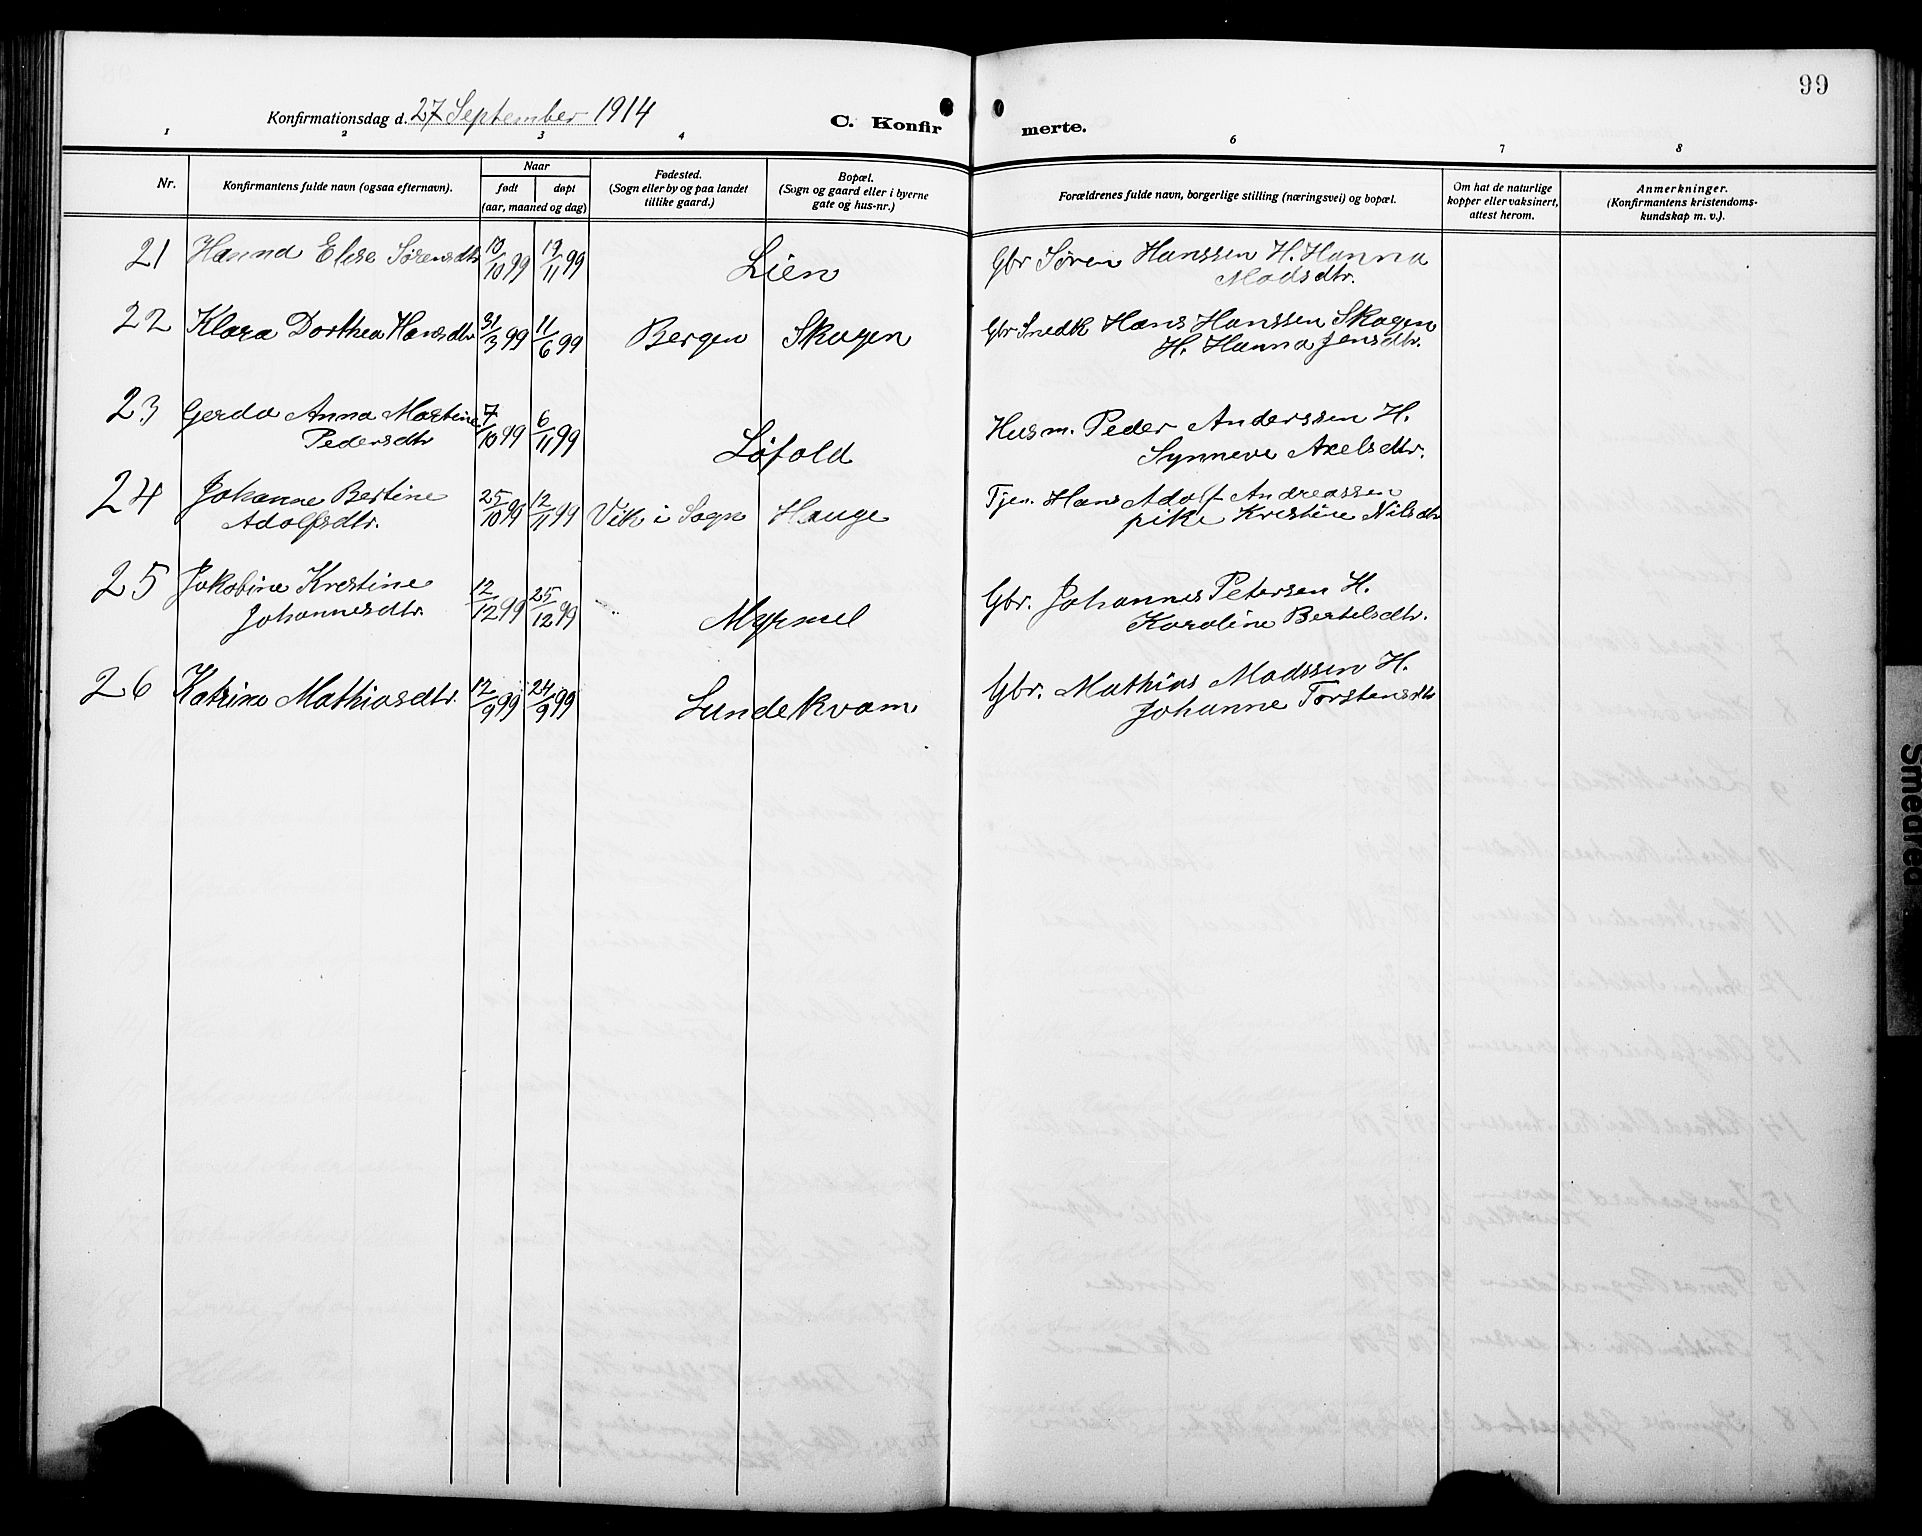 99
Konfirmationsdag d. 27 September 1914
C. Konfir merte.
1 2 3 4 6 7 8
Nr. Konfirmantens fulde navn (ogsaa efternavn). Naar født døpt (aar, maaned og dag) Fødested. (Sogn eller by og paa landet tillike gaard.) Bopæl. (Sogn og gaard eller i byerne gate og hus-nr.) Forældrenes fulde navn, borgerlige stilling (næringsvei) og bopæl. Om hat de naturlige kopper eller vaksinert, attest herom. Anmerkninger. (Konfirmantens kristendomskundskap m. v.).
21 Hanna Elise Sørensdtr 10/10 99 19/11 99 Lien Gbr Søren Hanssen H. Hanna
Madsdtr.
22 Klara Dorthea Hansdtr 31/3 99 11/6 99 Bergen Skagen Gbr Snedk Hans Hanssen Skagen
H. Hanna Jensdtr.
23 Gerda Anna Martine 7/10 99 6/11 99 Løfold Husm. Peder Anderssen H.
Pedersdtr Synneve Axelsdtr.
24 Johanne Bertine 25/10 99 12/11 99 Vik i Sogn Hauge Tjen. Hans Adolf Andreassen
Adolfsdtr. pike Kristine Nilsdtr
25 Jakobine Krestine 12/12 99 25/12 99 Myrmel Gbr. Johannes Petersen H.
Johannesdtr. Karoline Bertelsdtr.
26 Katrine Mathiasdtr. 12/9 99 24/9 99 Sundekvam Gbr. Mathias Madssen H.
Johanne Torstensdtr
Smedred